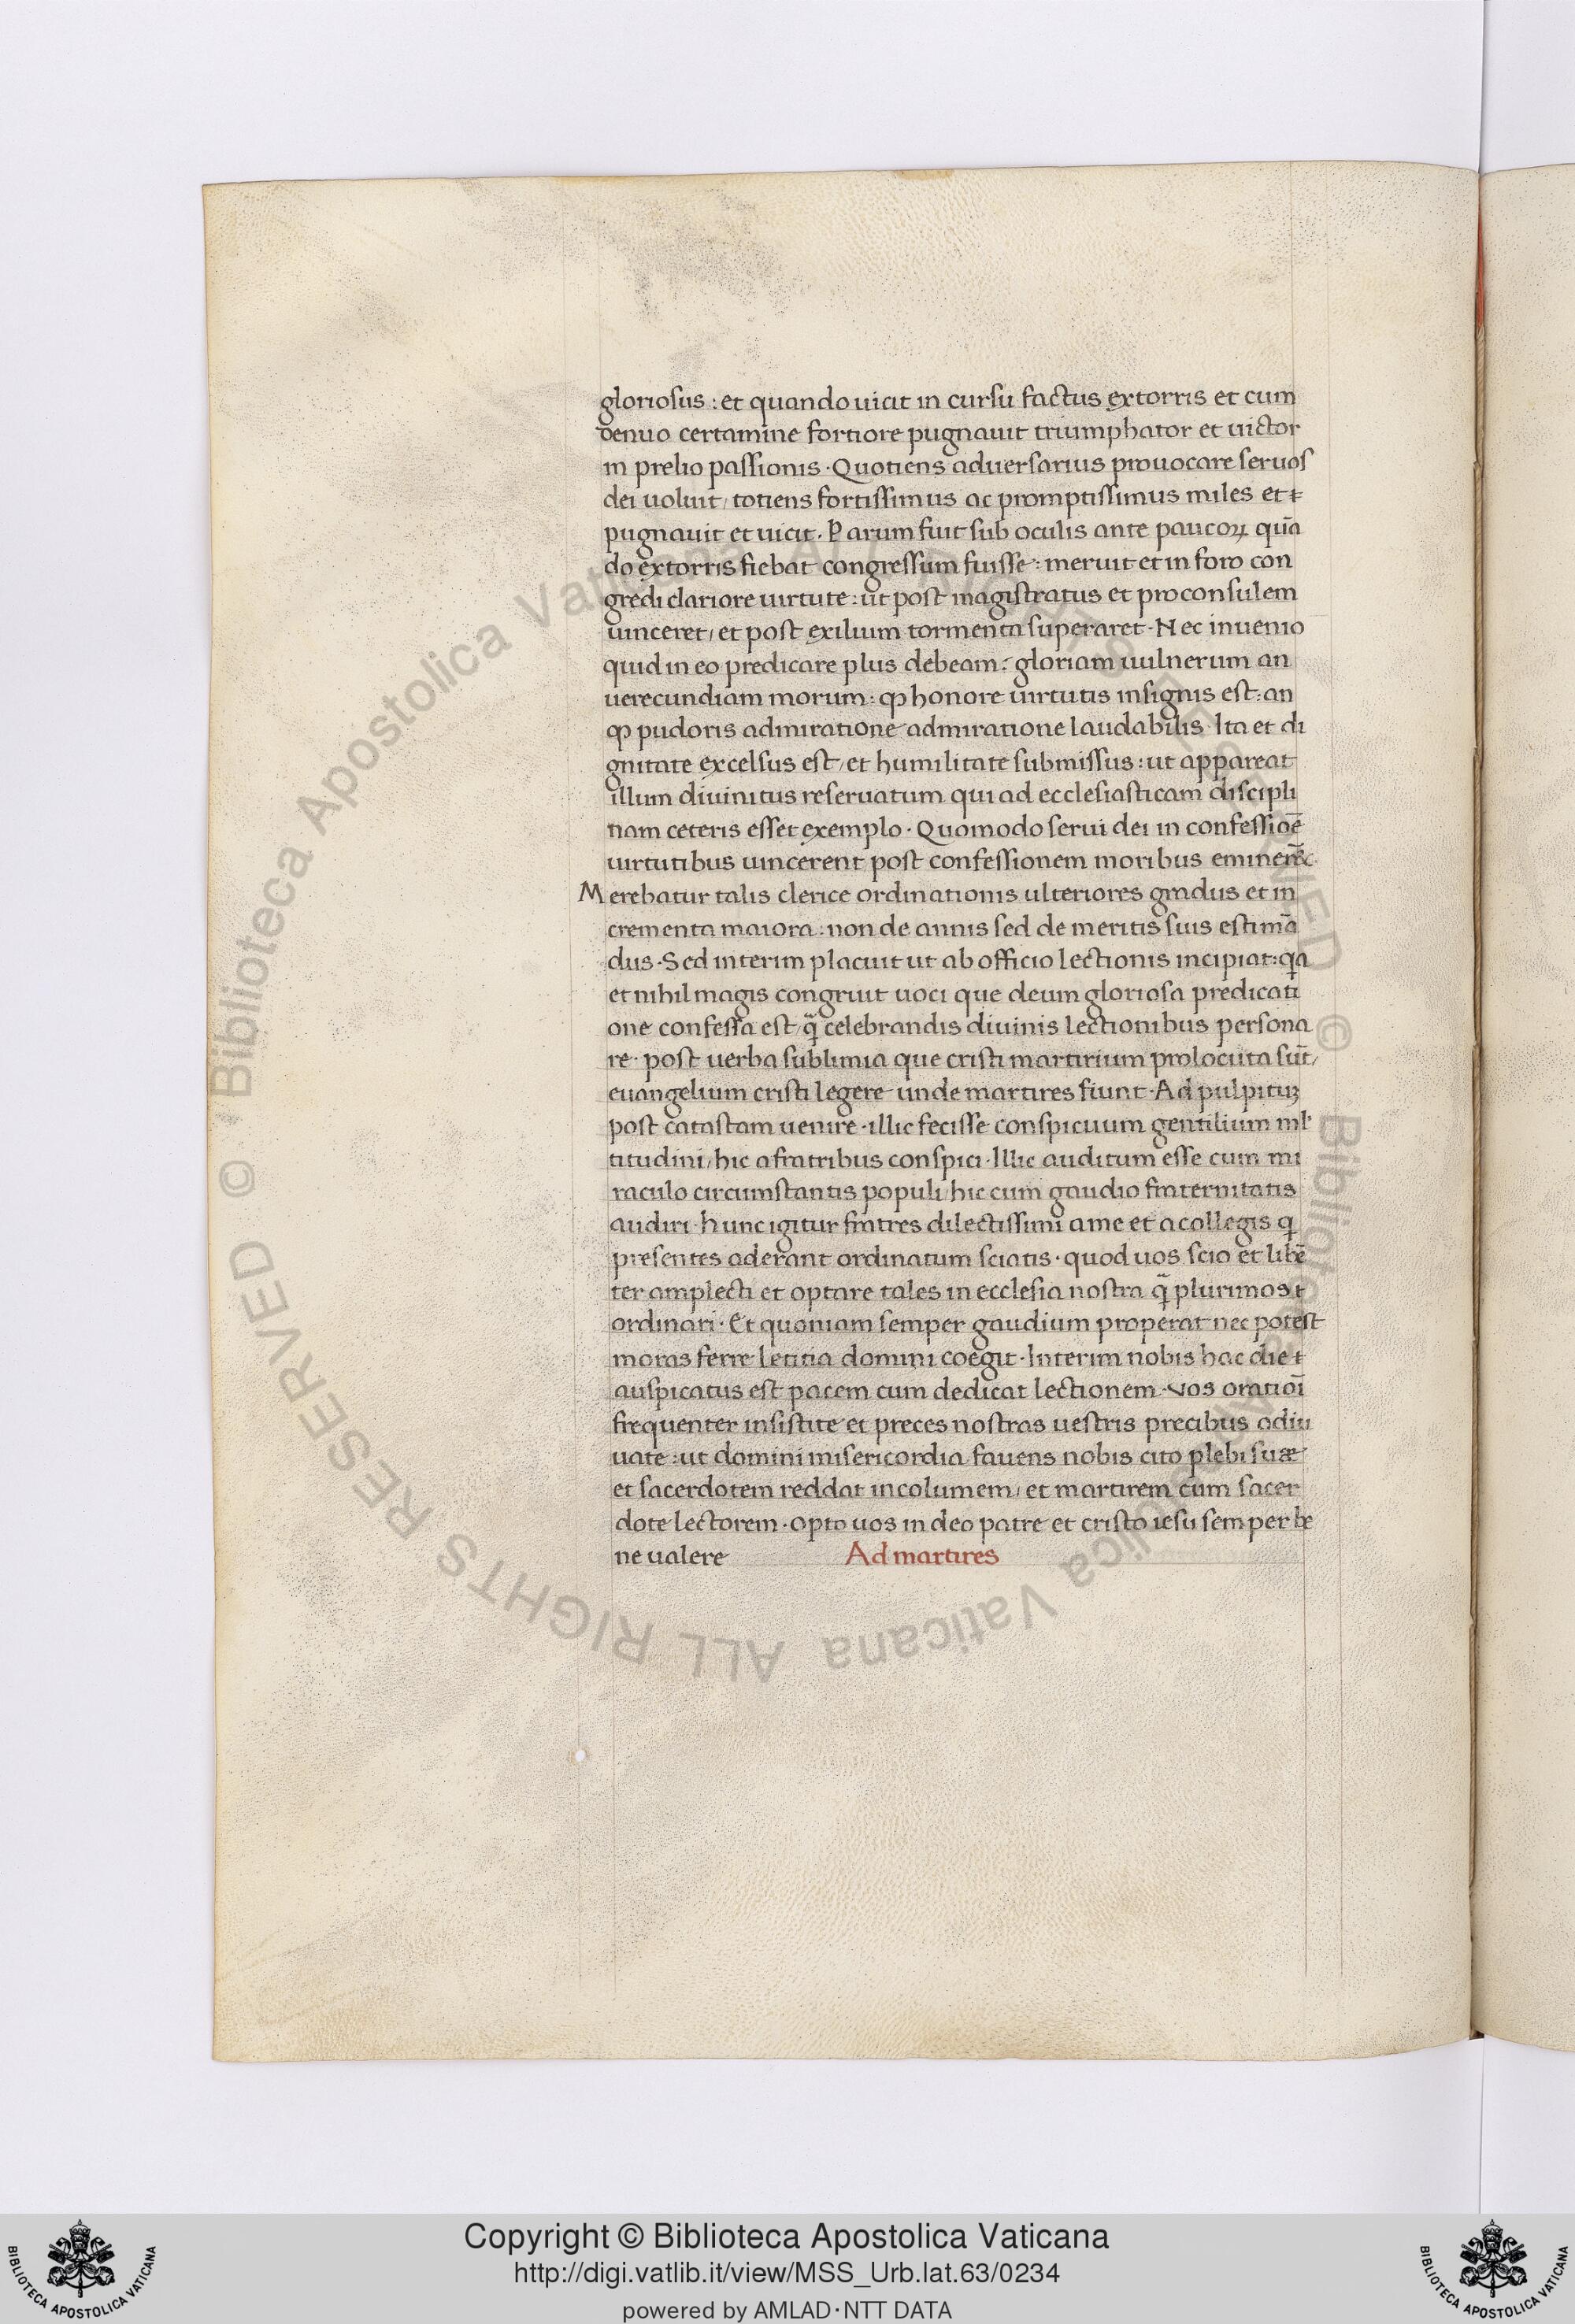 gloriosus : et quando uicit in cursu factus extorris et cum
denuo certamine fortiore pugnauit triumphator et uictor
in prelio passionis · Quotiens aduersarius prouocare seruos
dei uoluit / totiens fortissimus ac promptissimus miles et
pugnauit et uicit · Parum fuit sub oculis ante paucoꝝ quā
do extorris fiebat congressum fuisse : meruit et in foro con
gredi clariore uirtute : ut post magistratus et proconsulem
uinceret / et post exilium tormenta superaret · Nec inuenio
quid in eo predicare plus debeam : gloriam uulnerum an
uerecundiam morum : ꝙ honore uirtutis insignis est : an
ꝙ pudoris admiratione admiratione laudabilis · Ita et di
gnitate excelsus est / et humilitate submissus : ut appareat
illum diuinitus reseruatum qui ad ecclesiasticam discipli
nam ceteris esset exemplo · Quomodo serui dei in confessiōe
uirtutibus uincerent post confessionem moribus
Merebatur talis clerice ordinationis ulteriores gradus et in
crementa maiora : non de annis sed de meritis suis estimā
dus · Sed interim placuit ut ab officio lectionis incipiat : qa
et nihil magis congruit uoci que deum gloriosa predicati
one confessa est / q̄ celebrandis diuinis lectionibus persona
re · post uerba sublimia que cristi martirium prolocuta sūt /
euangelium cristi legere unde martires fiunt · Ad pulpituꝫ
post catastam uenire · illic fecisse conspicuum gentilium ml'
titudini / hic a fratribus conspici · Illic auditum esse cum mi
raculo circumstantis populi / hic cum gaudio fraternitatis
audiri · hunc igitur fratres dilectissimi a me et a collegis q
presentes aderant ordinatum sciatis · quod uos scio et libē
ter amplecti et optare tales in ecclesia nostra q̄ plurimos
ordinari · Et quoniam semper gaudium properat nec potest
moras ferre letitia domini coegit · Interim nobis hac die
auspicatus est pacem cum dedicat lectionem · Vos oratiōi
frequenter insistite et preces nostras uestris precibus adiu
uate : ut domini misericordia fauens nobis cito plebi suæ
et sacerdotem reddat incolumem / et martirem cum sacer
dote lectorem · opto uos in deo patre et cristo iesu semper be
ne ualere Ad martires
© Biblioteca Apostolica Vaticana ALL RIGHTS RESERVED © Biblioteca Apostolica Vaticana ALL RIGHTS RESERVED
BIBLIOTECA APOSTOLICA VATICANA
Copyright © Biblioteca Apostolica Vaticana
http://digi.vatlib.it/view/MSS_Urb.lat.63/0234
powered by AMLAD·NTT DATA
BIBLIOTECA APOSTOLICA VATICANA